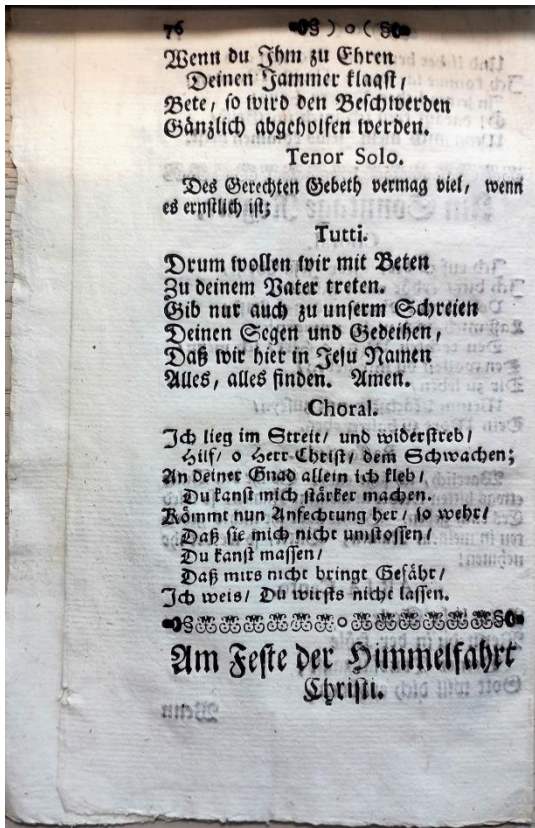 76
Wenn du Ihm zu Ehren
Deinen Jammer klagst,
Bete, so wird den Beschwerden
Gänzlich abgeholfen werden.
Tenor Solo.
Des Gerechten Gebeth vermag viel, wenn
es ernstlich ist;
Tutti.
Drum wollen wir mit Beten
Zu deinem Vater treten.
Gib nur auch zu unserm Schreien
Deinen Segen und Gedeihen,
Daß wir hier in Jesu Namen
Alles, alles finden. Amen.
Choral.
Ich lieg im Streit/ und widerstreb/
Hilf/ o Herr Christ/ dem Schwachen;
An deiner Gnad allein ich kleb/
Du kanst mich stärker machen.
Kömmt nun Anfechtung her/ so wehr/
Daß sie mich nicht umstossen/
Du kanst massen/
Daß mirs nicht bringt Gefähr/
Ich weis/ Du wirsts nicht lassen.
Am Feste der Himmelfahrt
Christi.